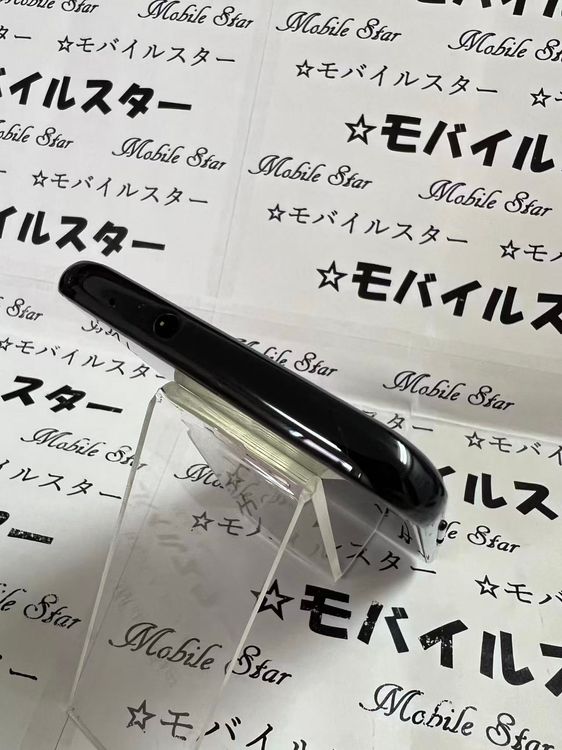 Mobile Star
Mobile Star
Mobile Star
☆モバイルスター
☆モバイルスター
イルスター
☆モバイル
Mobile Star
Mobile Star
Mobile Star
Mobile Star
☆モバイルスター
☆モバイルスター
イルスター
☆モバイルス
Mobile Star
スター
☆モバイルスター
Mobile Star
イルスター
Mobile Star
☆モバイル
Mobile Star
☆モバイル
Mobile Star
☆モバイ